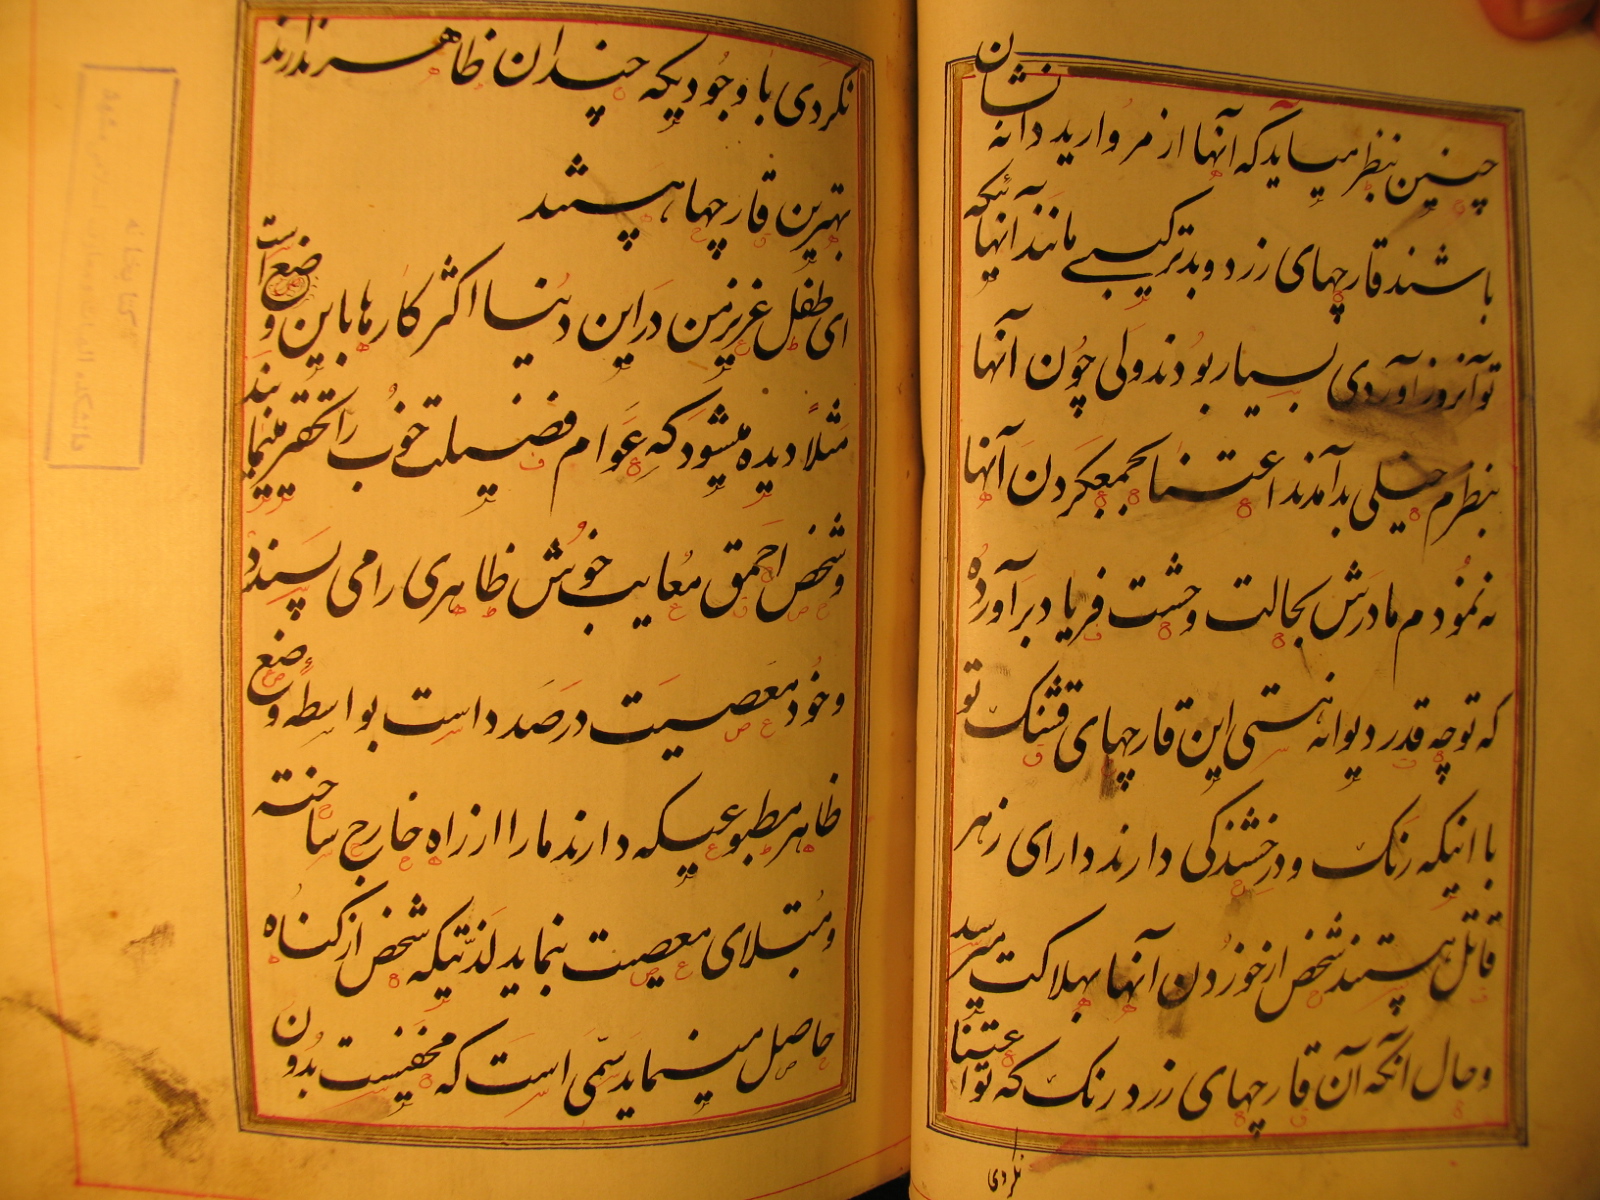 چنین بنظر میاید که آنها از مروارید دانه نشان
باشند قارچهای زرد و بدترکیبی مانند آنهائیکه
تو آنروز آوردی بسیار بودند ولی چون آنها
بنظرم خیلی بد آمدند اعتنا بجمعکردن آنها
نه نمودم مادرش بحالت وحشت فریاد برآورده
که تو چه قدر دیوانه هستی این قارچهای قشنک تو
با اینکه رنک و درخشندگی دارند دارای زهر
قاتل هستند شخص از خوردن آنها بهلاکت میرسد
و حال آنکه آن قارچهای زرد رنک که تو اعتنا
نکردی
نکردی با وجودیکه چندان ظاهر ندارند
بهترین قارچها هستند
ای طفل عزیز من در این دنیا اکثر کارها باین وضع است
مثلاً دیده میشود که عوام فضیلت خوب را تحقیر مینمایند
و شخص احمق معایب خوش ظاهری را می پسندد
و خود معصیت در صدد است بواسطهٔ وضع
ظاهر مطبوعیکه دارند ما را از راه خارج ساخته
و مبتلای معصیت بنماید لذتیکه شخص از کناه
حاصل مینماید سمّی است که مخفیست بدون